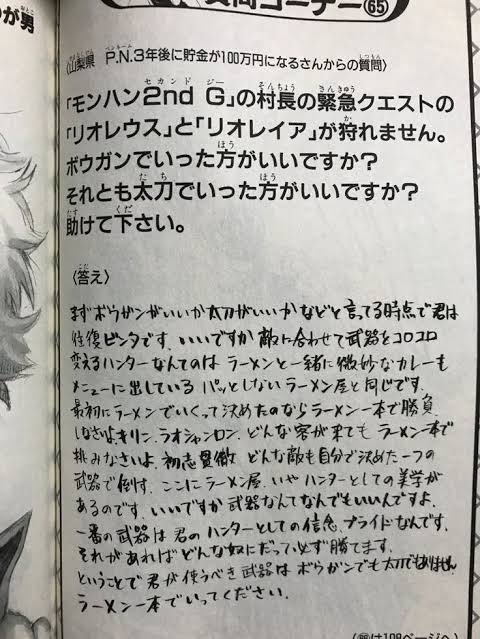 が男
質問コーナー65
〈山梨県 P.N.3年後に貯金が100万円になるさんからの質問〉
「モンハン2nd G」の村長の緊急クエストの
「リオレウス」と「リオレイア」が狩れません。
ボウガンでいった方がいいですか?
それとも太刀でいった方がいいですか?
助けて下さい。
〈答え〉
まずボウガンがいいか太刀がいいかなどと言ってる時点で君は
往復ビンタです。いいですか 敵に合わせて武器をコロコロ
変えるハンターなんてのは ラーメンと一緒に微妙なカレーも
メニューに出している パッとしないラーメン屋と同じです。
最初にラーメンでいくって決めたのならラーメン一本で勝負
しなさいよ。キリン、ラオシャンロン、どんな客が来ても ラーメン一本で
挑みなさいよ。初志貫徹 どんな敵も自分で決めた一つの
武器で倒す。ここにラーメン屋、いやハンターとしての美学が
あるのです。いいですか 武器なんてなんでもいいんですよ。
一番の武器は 君のハンターとしての信念、プライドなんです。
それがあればどんな奴にだって必ず勝てます。
ということで君が使うべき武器は ボウガンでも太刀でもありません
ラーメン一本でいってください。
は108ページへ〉